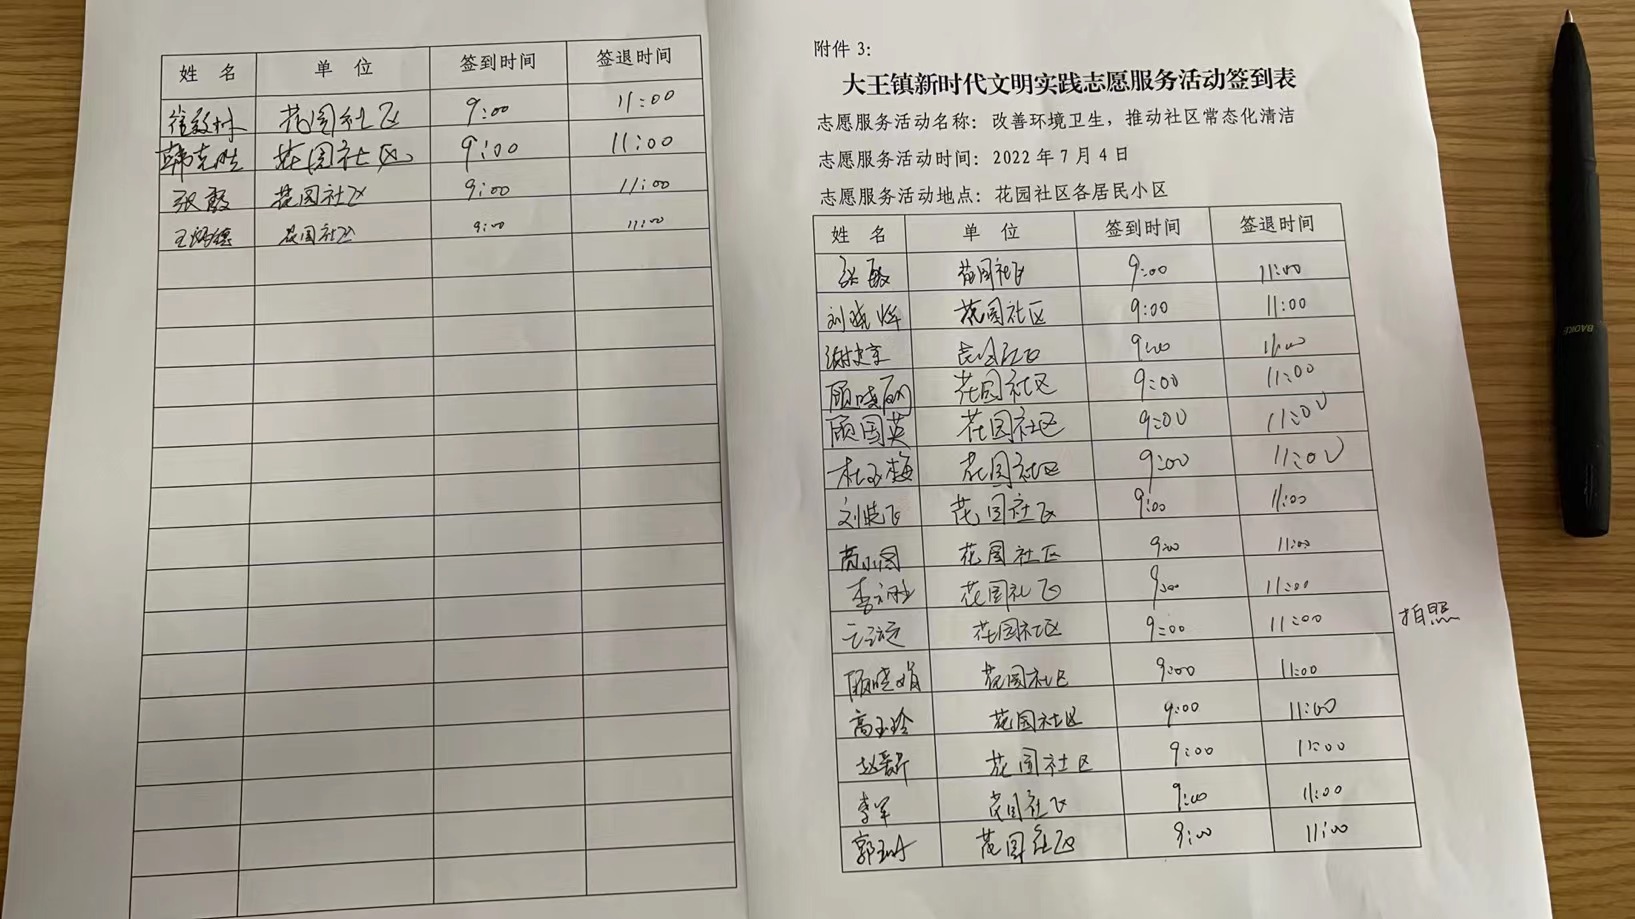 姓 名 单 位 签到时间 签退时间
花园社区 9:00 11:00
韩克胜 花园社区 9:00 11:00
张霞 花园社区 9:00 11:00
花园社区 9:00 11:00
附件 3:
大王镇新时代文明实践志愿服务活动签到表
志愿服务活动名称：改善环境卫生，推动社区常态化清洁
志愿服务活动时间：2022 年 7 月 4 日
志愿服务活动地点：花园社区各居民小区
姓 名 单 位 签到时间 签退时间
张敏 花园社区 9:00 11:00
刘晓辉 花园社区 9:00 11:00
花园社区 9:00 11:00
顾晓丽 花园社区 9:00 11:00
顾国英 花园社区 9:00 11:00
杜玉梅 花园社区 9:00 11:00
刘晓飞 花园社区 9:00 11:00
花园社区 9:00 11:00
花园社区 9:00 11:00
花园社区 9:00 11:00 拍照
顾晓娟 花园社区 9:00 11:00
高玉玲 花园社区 9:00 11:00
花园社区 9:00 11:00
李军 花园社区 9:00 11:00
花园社区 9:00 11:00
BAOKE